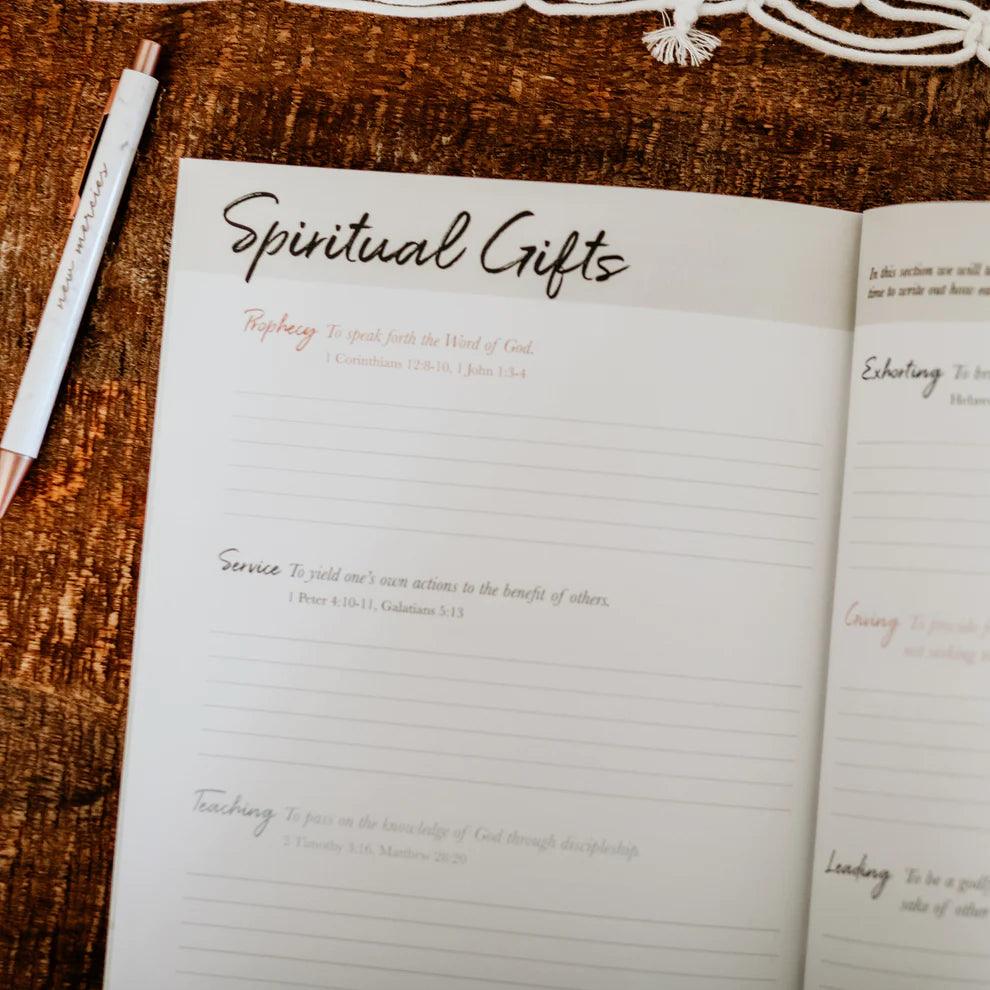 new mercies
Spiritual Gifts
Prophecy To speak forth the Word of God.
1 Corinthians 12:8-10, 1 John 1:3-4
Service To yield one's own actions to the benefit of others.
1 Peter 4:10-11, Galatians 5:13
Teaching To pass on the knowledge of God through discipleship.
2 Timothy 3:16, Matthew 28:20
In this section we will
time to write out how
Exhorting To be
Hebrews
Giving To provide
not seeking
Leading To be a godly
sake of other